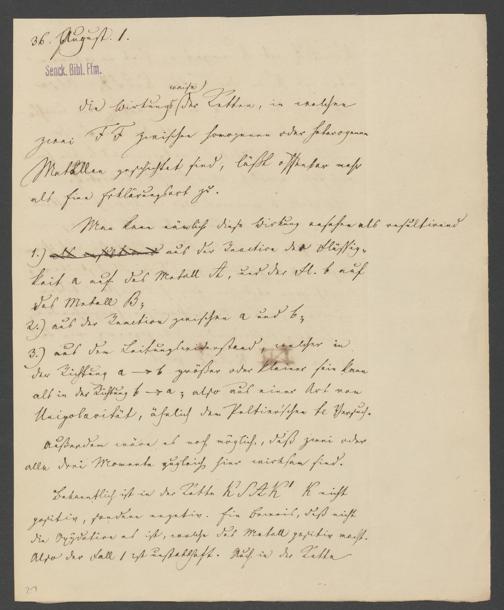 36. August. 1.
Senck. Bibl. Ffm.
weise)
Die Wirkungs(der Ketten, in welchen
zwei F F zwischen homogenen oder heterogenen
Metallen geschichtet sind, läßt offenbar mehr
als Eine Erklärungsart zu.
Man kann nämlich diese Wirkung ansehen als resultirend
1.) aus der Reaction der Flüssig-
keit a auf das Metall A, und der Fl. b auf
das Metall B;
2.) aus der Reaction zwischen a und b;
3.) aus dem Leitungswiderstand, welcher in
der Richtung a → b größer oder kleiner sein kann
als in der Richtung b → a; also aus einer Art von
Unipolarität, ähnlich dem Peltier'schen Versuch.
Außerdem wäre es noch möglich, daß zwei oder
alle drei Momente zugleich hier wirksam sind.
Bekanntlich ist in der Kette K S A K' K nicht
positiv, sondern negativ. Ein Beweis, daß nicht
die Oxydation es ist, welche das Metall positiv macht.
Also der Fall 1 ist unstatthaft. Auch in der Kette